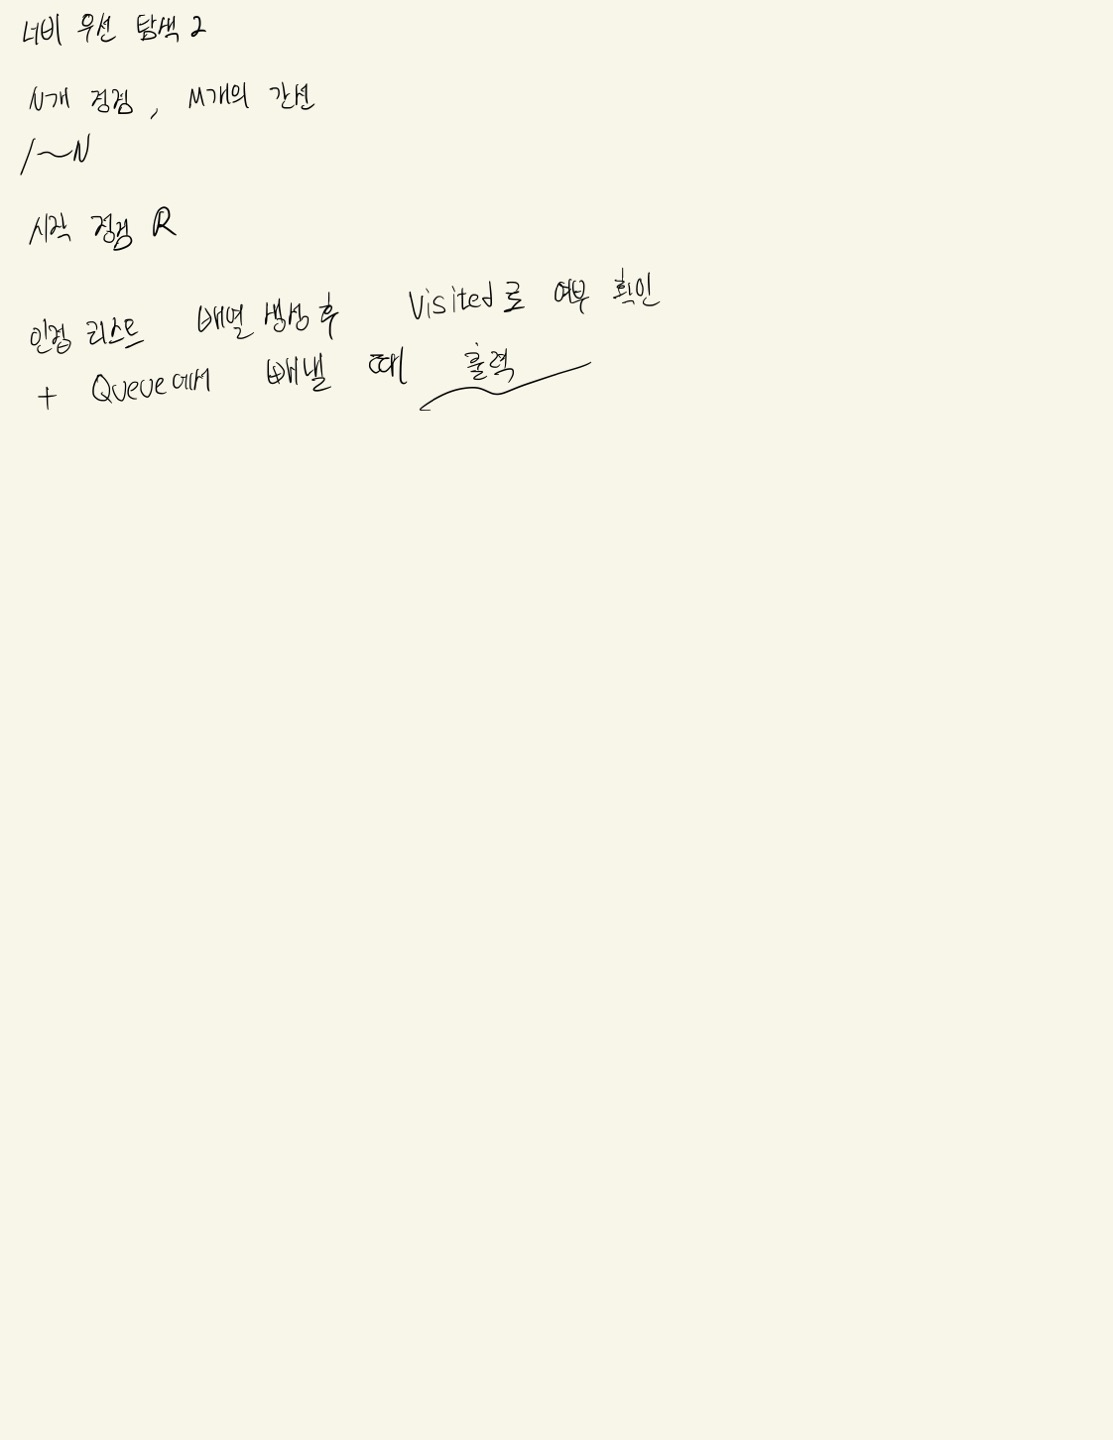 너비 우선 탐색 2
N개 정점, M개의 간선
1~N
시작 정점 R
인접 리스트 배열 생성 후 Visited로 여부 확인
+ Queue에서 빼낼 때 출력